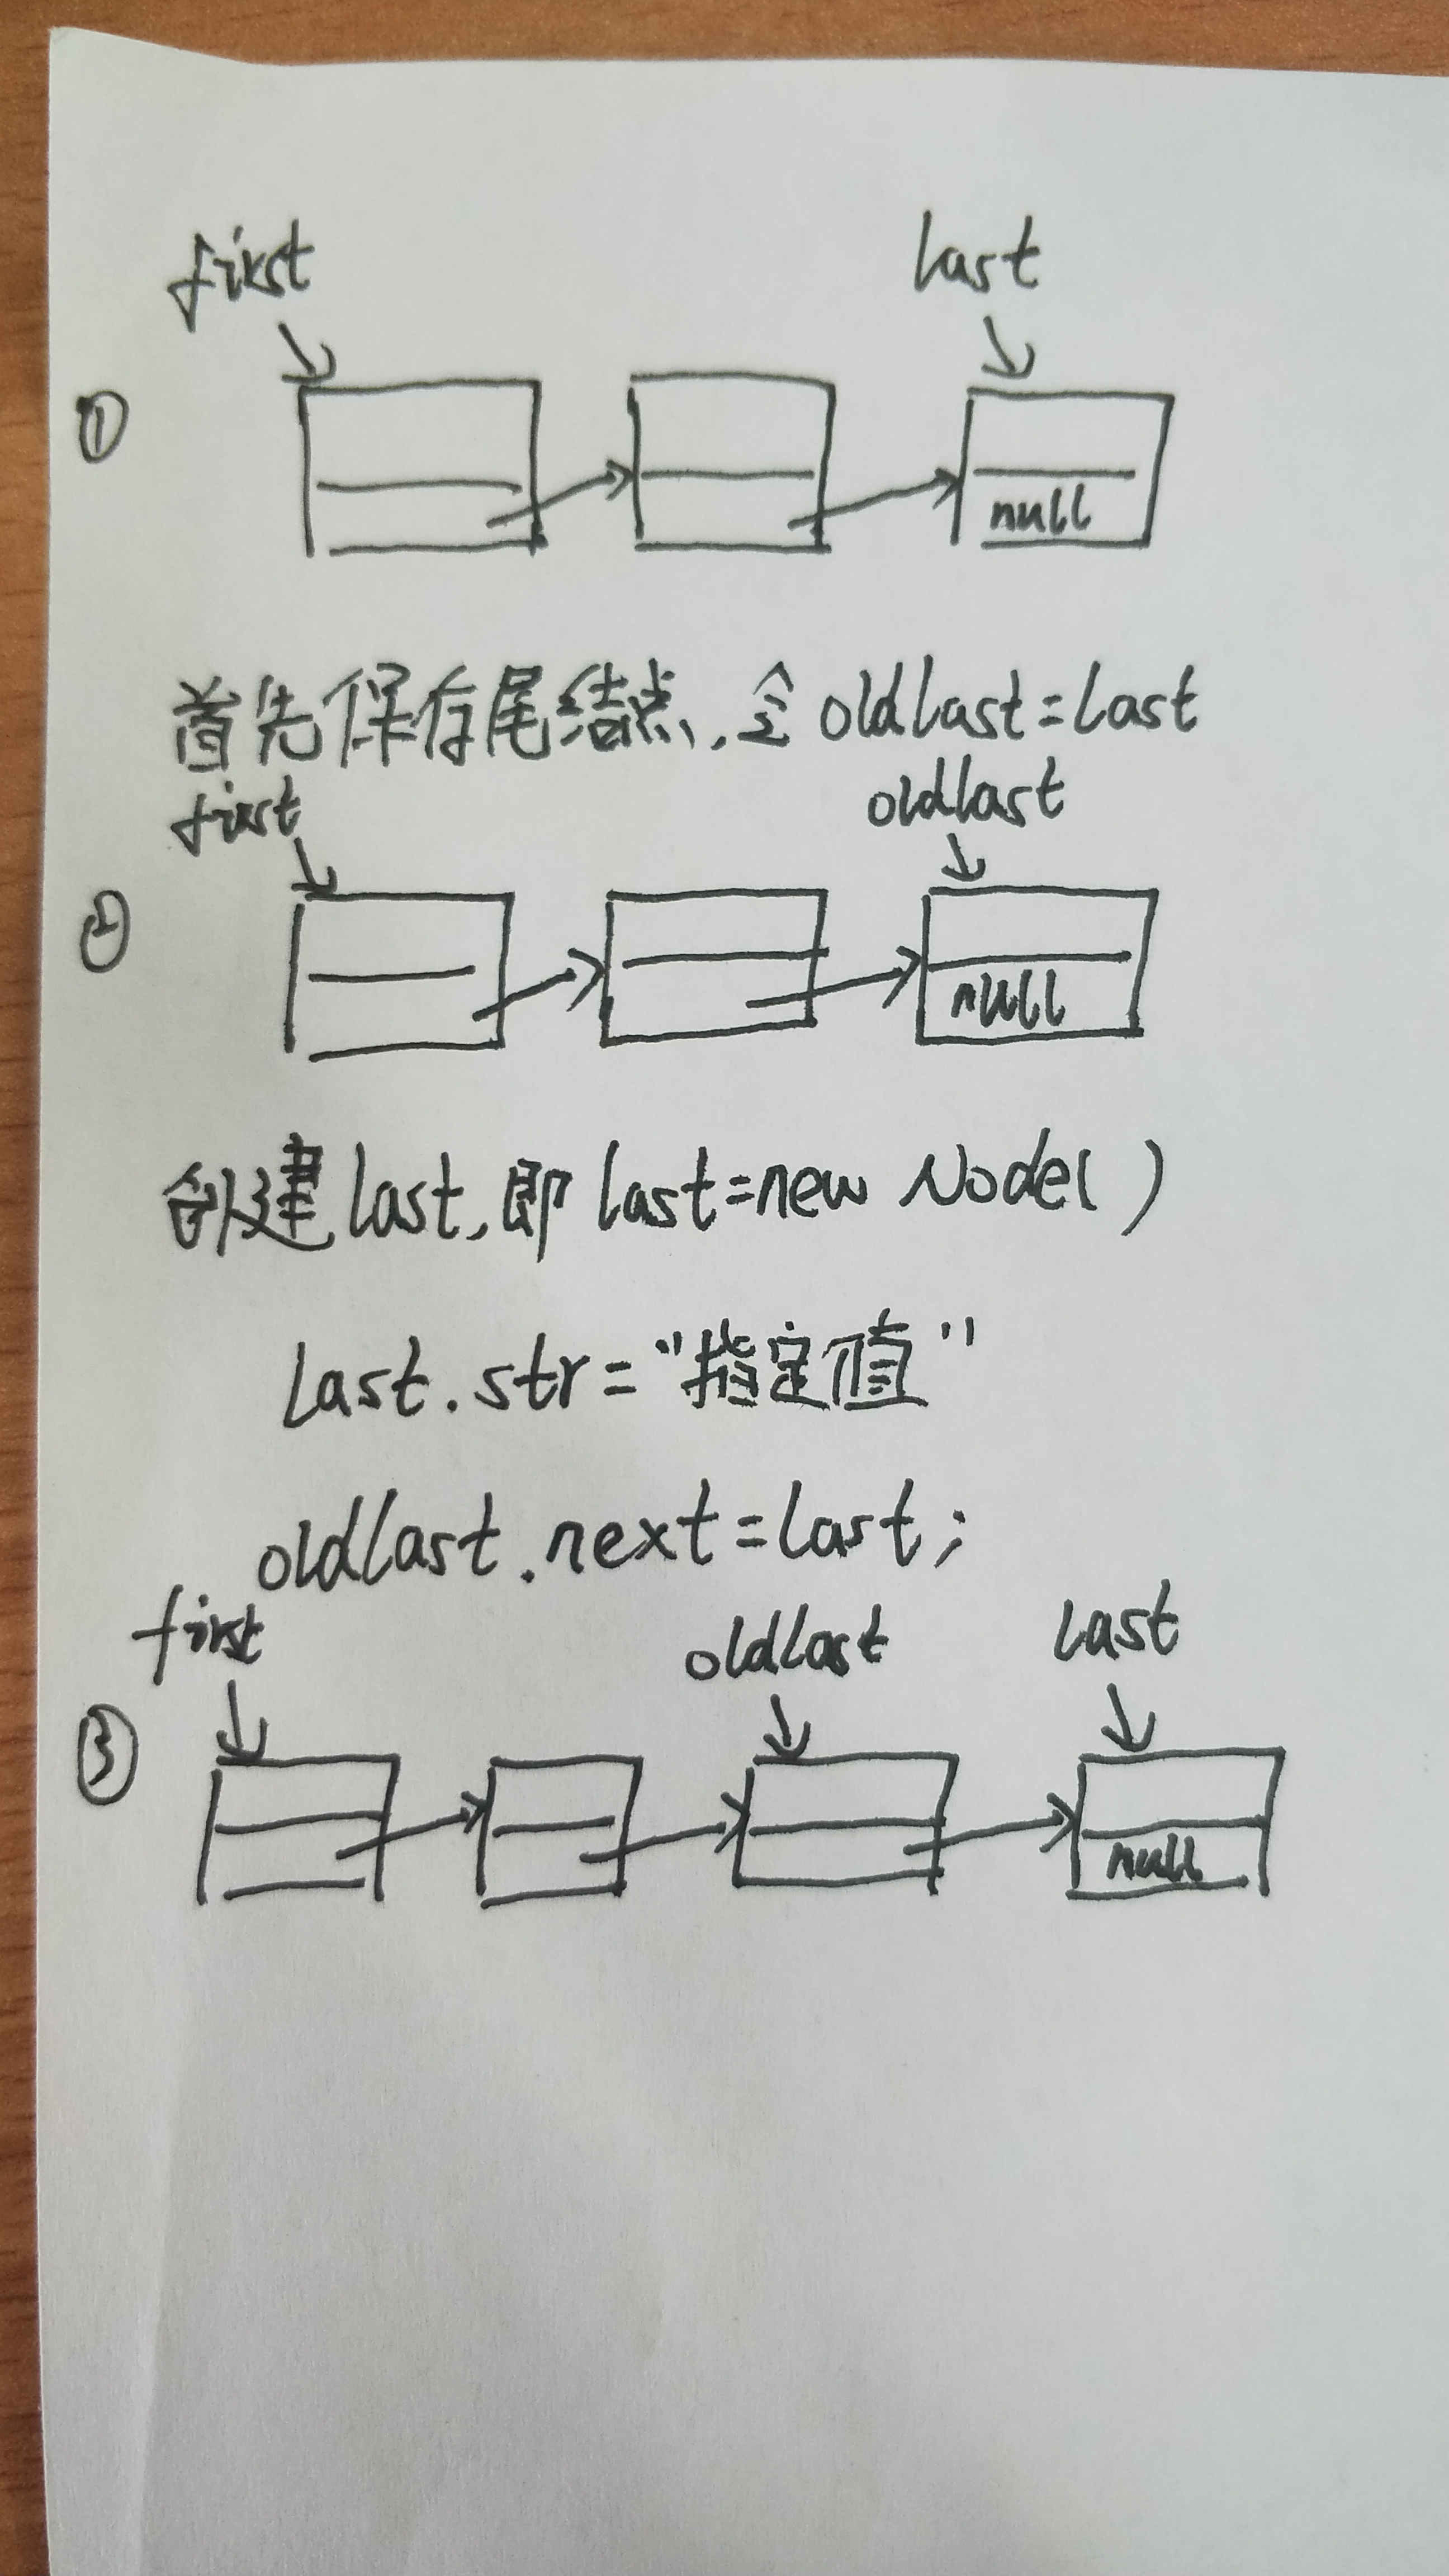 first last
①
null
首先保存尾结点,令 oldlast=last
first oldlast
②
null
创建 last,即 last=new Node()
last.str="指定值"
oldlast.next=last;
first oldlast last
③
null